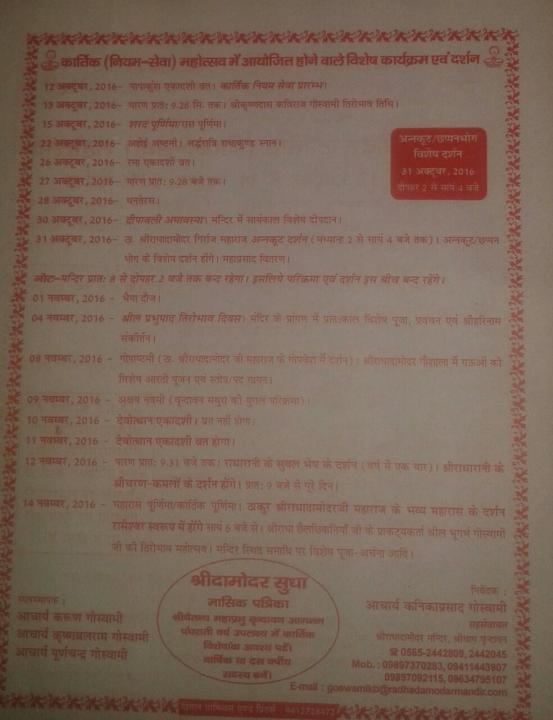 कार्तिक (नियम-सेवा) महोत्सव में आयोजित होने वाले विशेष कार्यक्रम एवं दर्शन
12 अक्टूबर, 2016- पापाकुंशा एकादशी व्रत। कार्तिक नियम सेवा प्रारम्भ।
13 अक्टूबर, 2016- पारण प्रातः 9-28 मि. तक। श्रीकृष्णदास कविराज गोस्वामी तिरोभाव तिथि।
15 अक्टूबर, 2016- शरद पूर्णिमा/रास पूर्णिमा।
22 अक्टूबर, 2016- अहोई अष्टमी। अर्द्धरात्रि राधाकुण्ड स्नान।
26 अक्टूबर, 2016- रमा एकादशी व्रत।
27 अक्टूबर, 2016- पारण प्रातः 9-28 बजे तक।
28 अक्टूबर, 2016- धनतेरस।
अन्नकूट/छप्पनभोग
विशेष दर्शन
31 अक्टूबर, 2016
दोपहर 2 से सायं 4 बजे
30 अक्टूबर, 2016- दीपावली अमावस्या। मन्दिर में सायंकाल विशेष दीपदान।
31 अक्टूबर, 2016- ठा. श्रीराधादामोदर गिर्राज महाराज अन्नकूट दर्शन (मध्यान्ह 2 से सायं 4 बजे तक)। अन्नकूट/छप्पन
भोग के विशेष दर्शन होंगे। महाप्रसाद वितरण।
नोट-मन्दिर प्रातः 8 से दोपहर 2 बजे तक बन्द रहेगा। इसलिये परिक्रमा एवं दर्शन इस बीच बन्द रहेंगे।
01 नवम्बर, 2016 - भैया दौज।
04 नवम्बर, 2016 - श्रील प्रभुपाद तिरोभाव दिवस। मंदिर के प्रांगण में प्रातःकाल विशेष पूजा, प्रवचन एवं श्रीहरिनाम
संकीर्तन।
08 नवम्बर, 2016 - गोपाष्टमी (ठा. श्रीराधादामोदर जी महाराज के गोपवेश में दर्शन)। श्रीराधादामोदर गौशाला में गऊओं को
विशेष आरती पूजन एवं स्तोत्र/पद गायन।
09 नवम्बर, 2016 - अक्षय नवमी (वृन्दावन मथुरा की युगल परिक्रमा)।
10 नवम्बर, 2016 - देवोत्थान एकादशी। व्रत नहीं होगा।
11 नवम्बर, 2016 - देवोत्थान एकादशी व्रत होगा।
12 नवम्बर, 2016 - पारण प्रातः 9.31 बजे तक। राधारानी के सुबल भेष के दर्शन (वर्ष में एक बार)। श्रीराधारानी के
श्रीचरण-कमलों के दर्शन होंगे। प्रातः 9 से पूरे दिन।
14 नवम्बर, 2016 - महारास पूर्णिमा/कार्तिक पूर्णिमा। ठाकुर श्रीराधादामोदरजी महाराज के भव्य महारास के दर्शन
रासेश्वर स्वरूप में होंगे सायं 6 बजे से। श्रीराधा छैलछिकनियाँ जी के प्राकट्यकर्ता श्रील भूगर्भ गोस्वामी
जी की तिरोभाव महोत्सव। मन्दिर स्थित समाधि पर विशेष पूजा-अर्चना आदि।
व्यवस्थापक :
आचार्य करूण गोस्वामी
आचार्य कृष्णबलराम गोस्वामी
आचार्य पूर्णचन्द्र गोस्वामी
श्रीदामोदर सुधा
मासिक पत्रिका
श्रीचैतन्य महाप्रभु वृन्दावन आगमन
पंचशती वर्ष उपलक्ष्य में कार्तिक
विशेषांक अवश्य पढ़ें।
वार्षिक या दस वर्षीय
सदस्य बनें।
निवेदक :
आचार्य कनिकाप्रसाद गोस्वामी
सहसेवायत
श्रीराधादामोदर मन्दिर, श्रीधाम वृन्दावन
☎ 0565-2442809, 2442045
Mob. : 09897370283, 09411443907
09897092115, 09634795107
E-mail : goswamikb@radhadamodarmandir.com